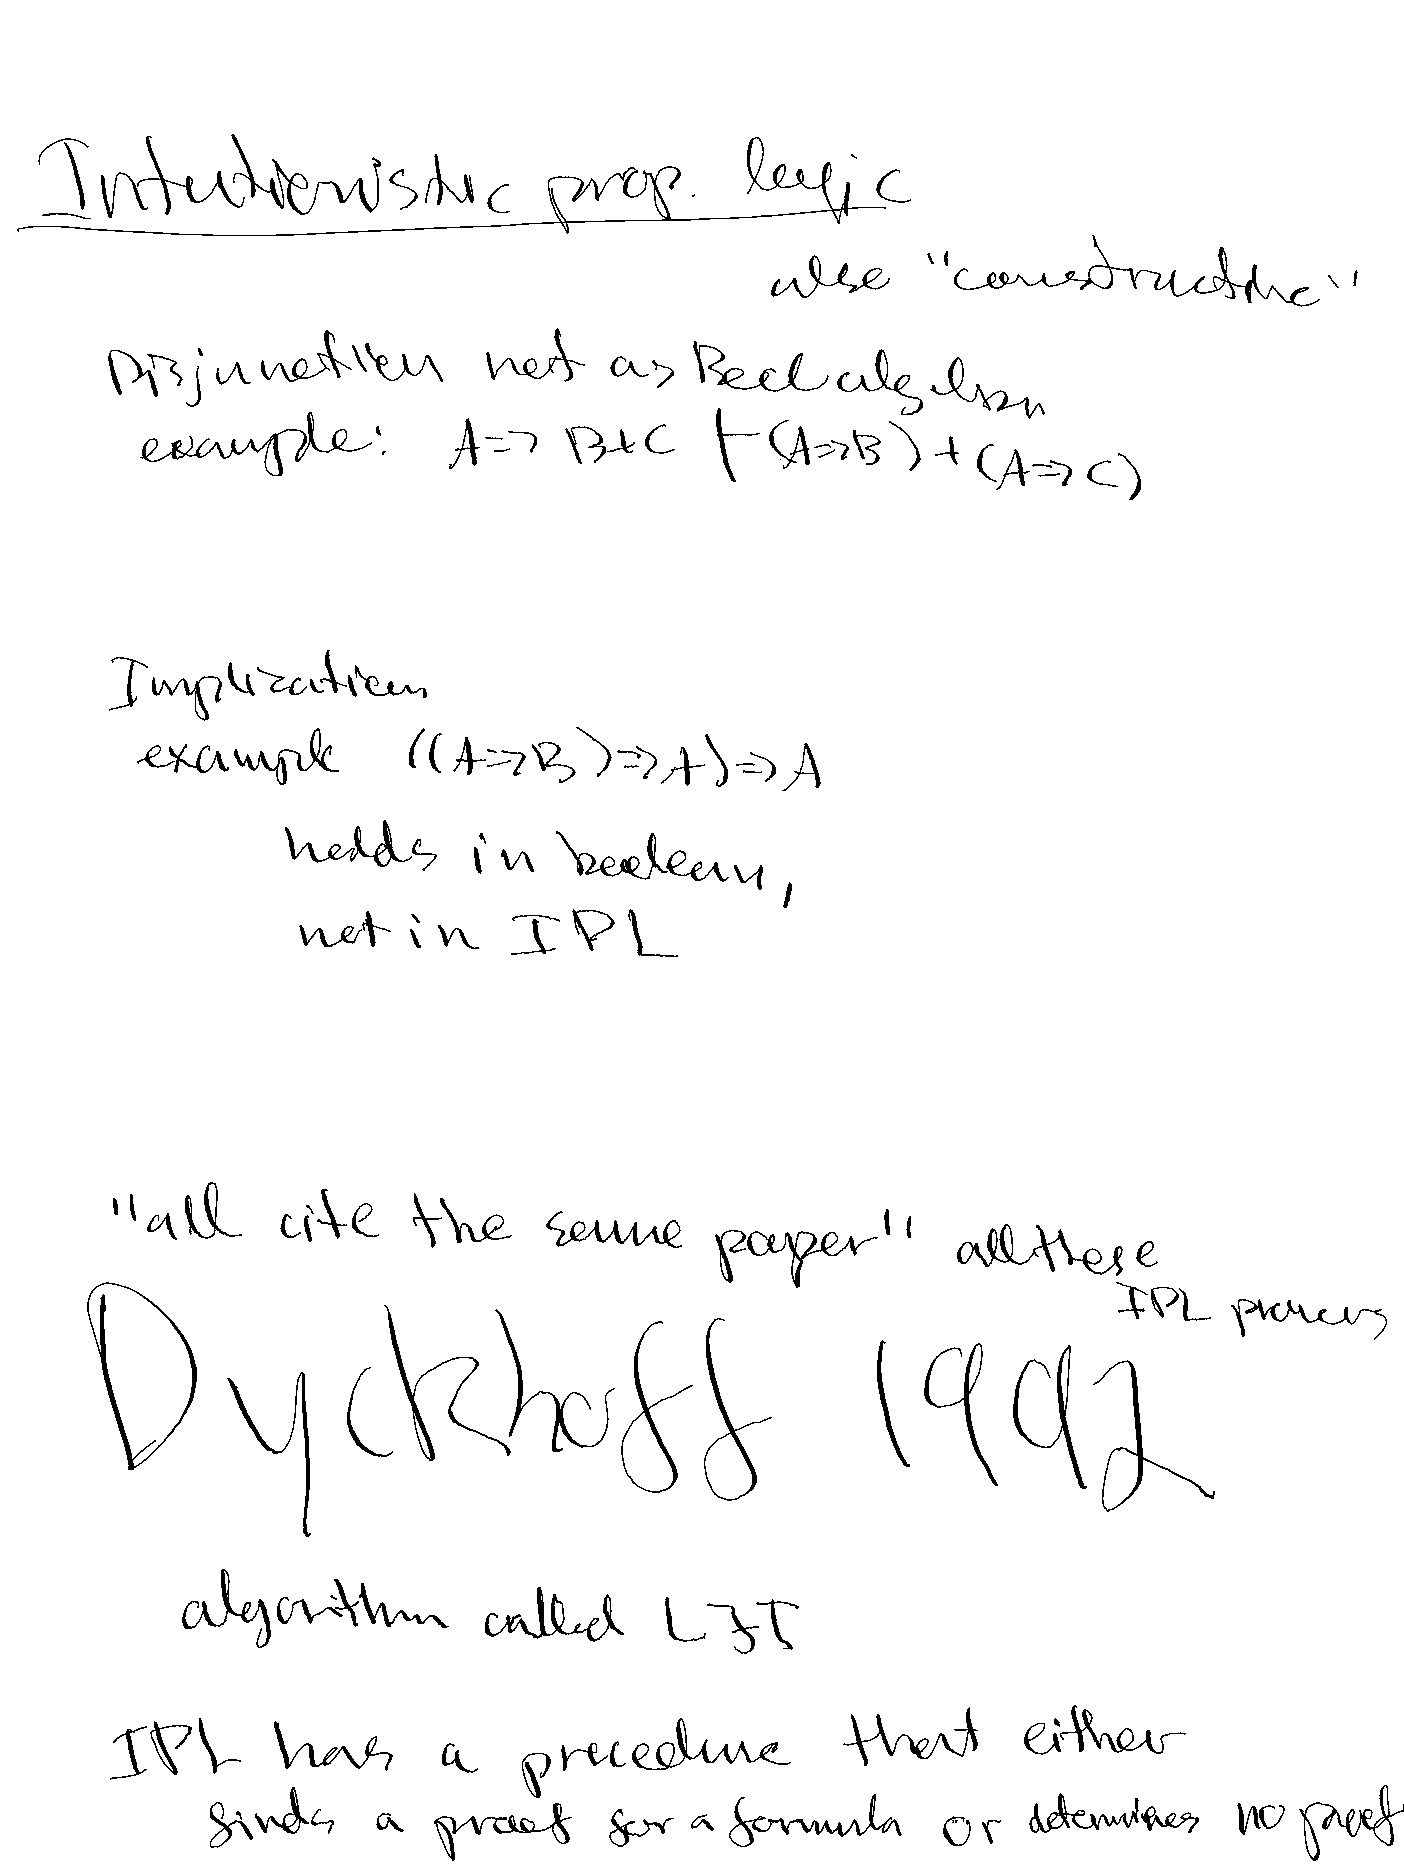 Intuitionistic prop. logic
also "constructive"
Disjunction not as Bool algebra
example: A => B+C ⊢ (A=>B) + (A=>C)
Implication
example ((A=>B)=>A)=>A
holds in boolean,
not in IPL
"all cite the same paper" all these
IPL provers
Dyckhoff 1992
algorithm called LJT
IPL has a procedure that either
finds a proof for a formula or determines no proof